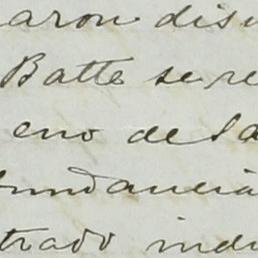 aron dis
Batte se re
eno de la
undancia
trado indi